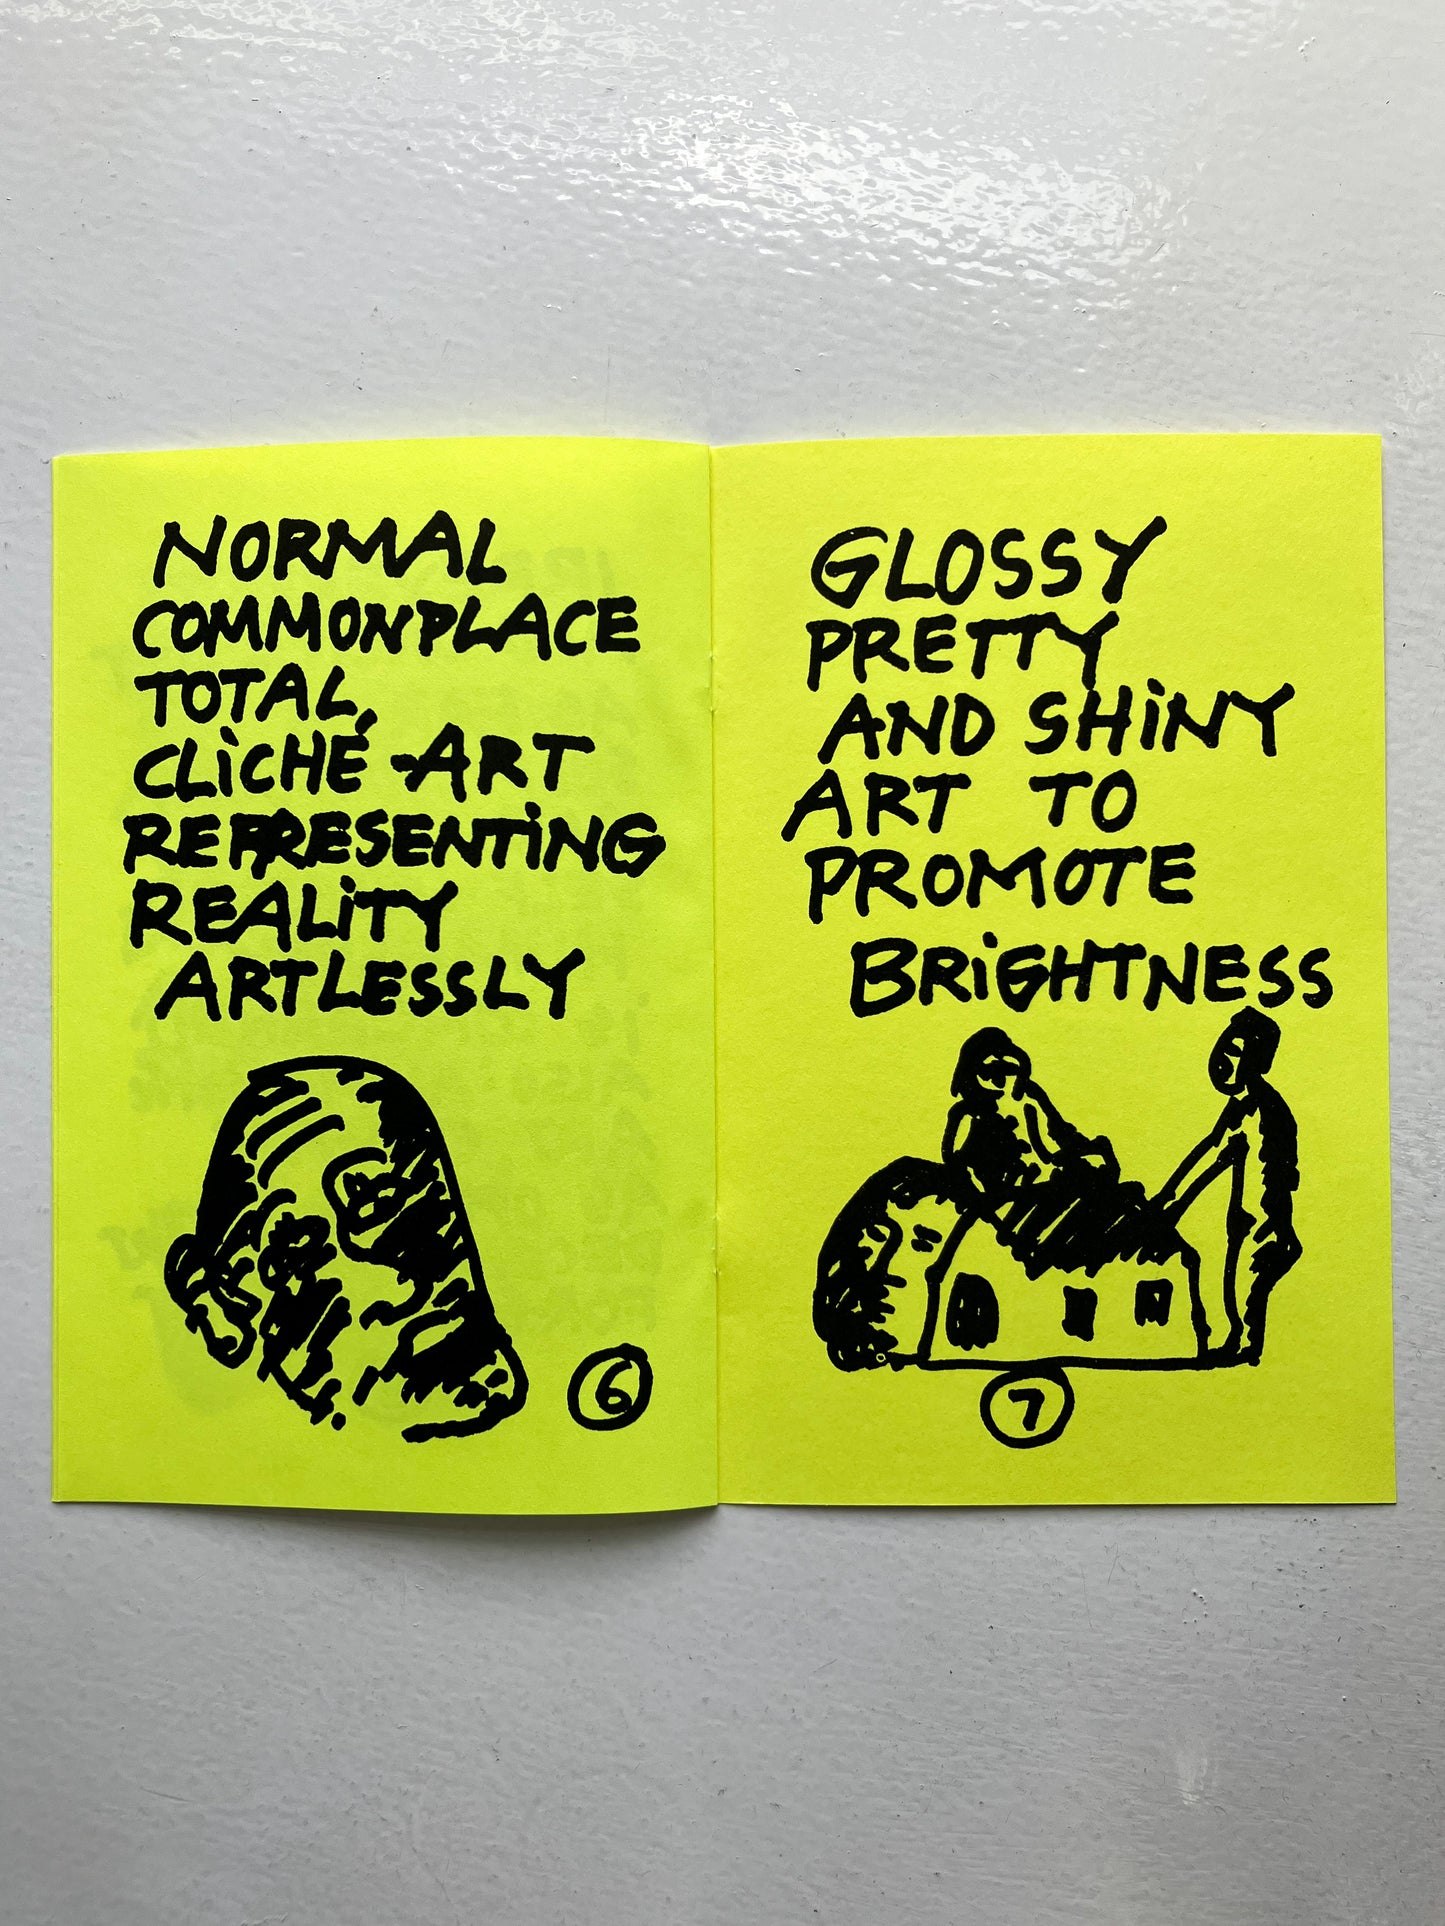 NORMAL
COMMONPLACE
TOTAL,
CLiCHÉ-ART
REPRESENTiNG
REALiTY
ARTLESSLY
6
GLOSSY
PRETTY
AND SHiNY
ART TO
PROMOTE
BRiGHTNESS
7